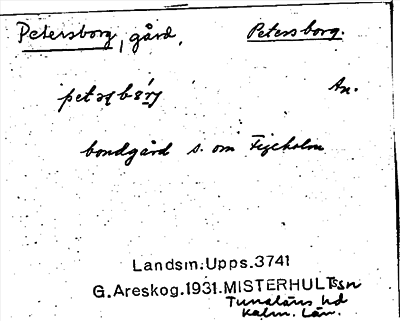 Petersborg, gård. Petersborg.
An.
bondgård s. om Figeholm
Landsm. Upps. 3741
G. Areskog. 1931. MISTERHULTssn
Tunaläns hd
Kalm. Län.